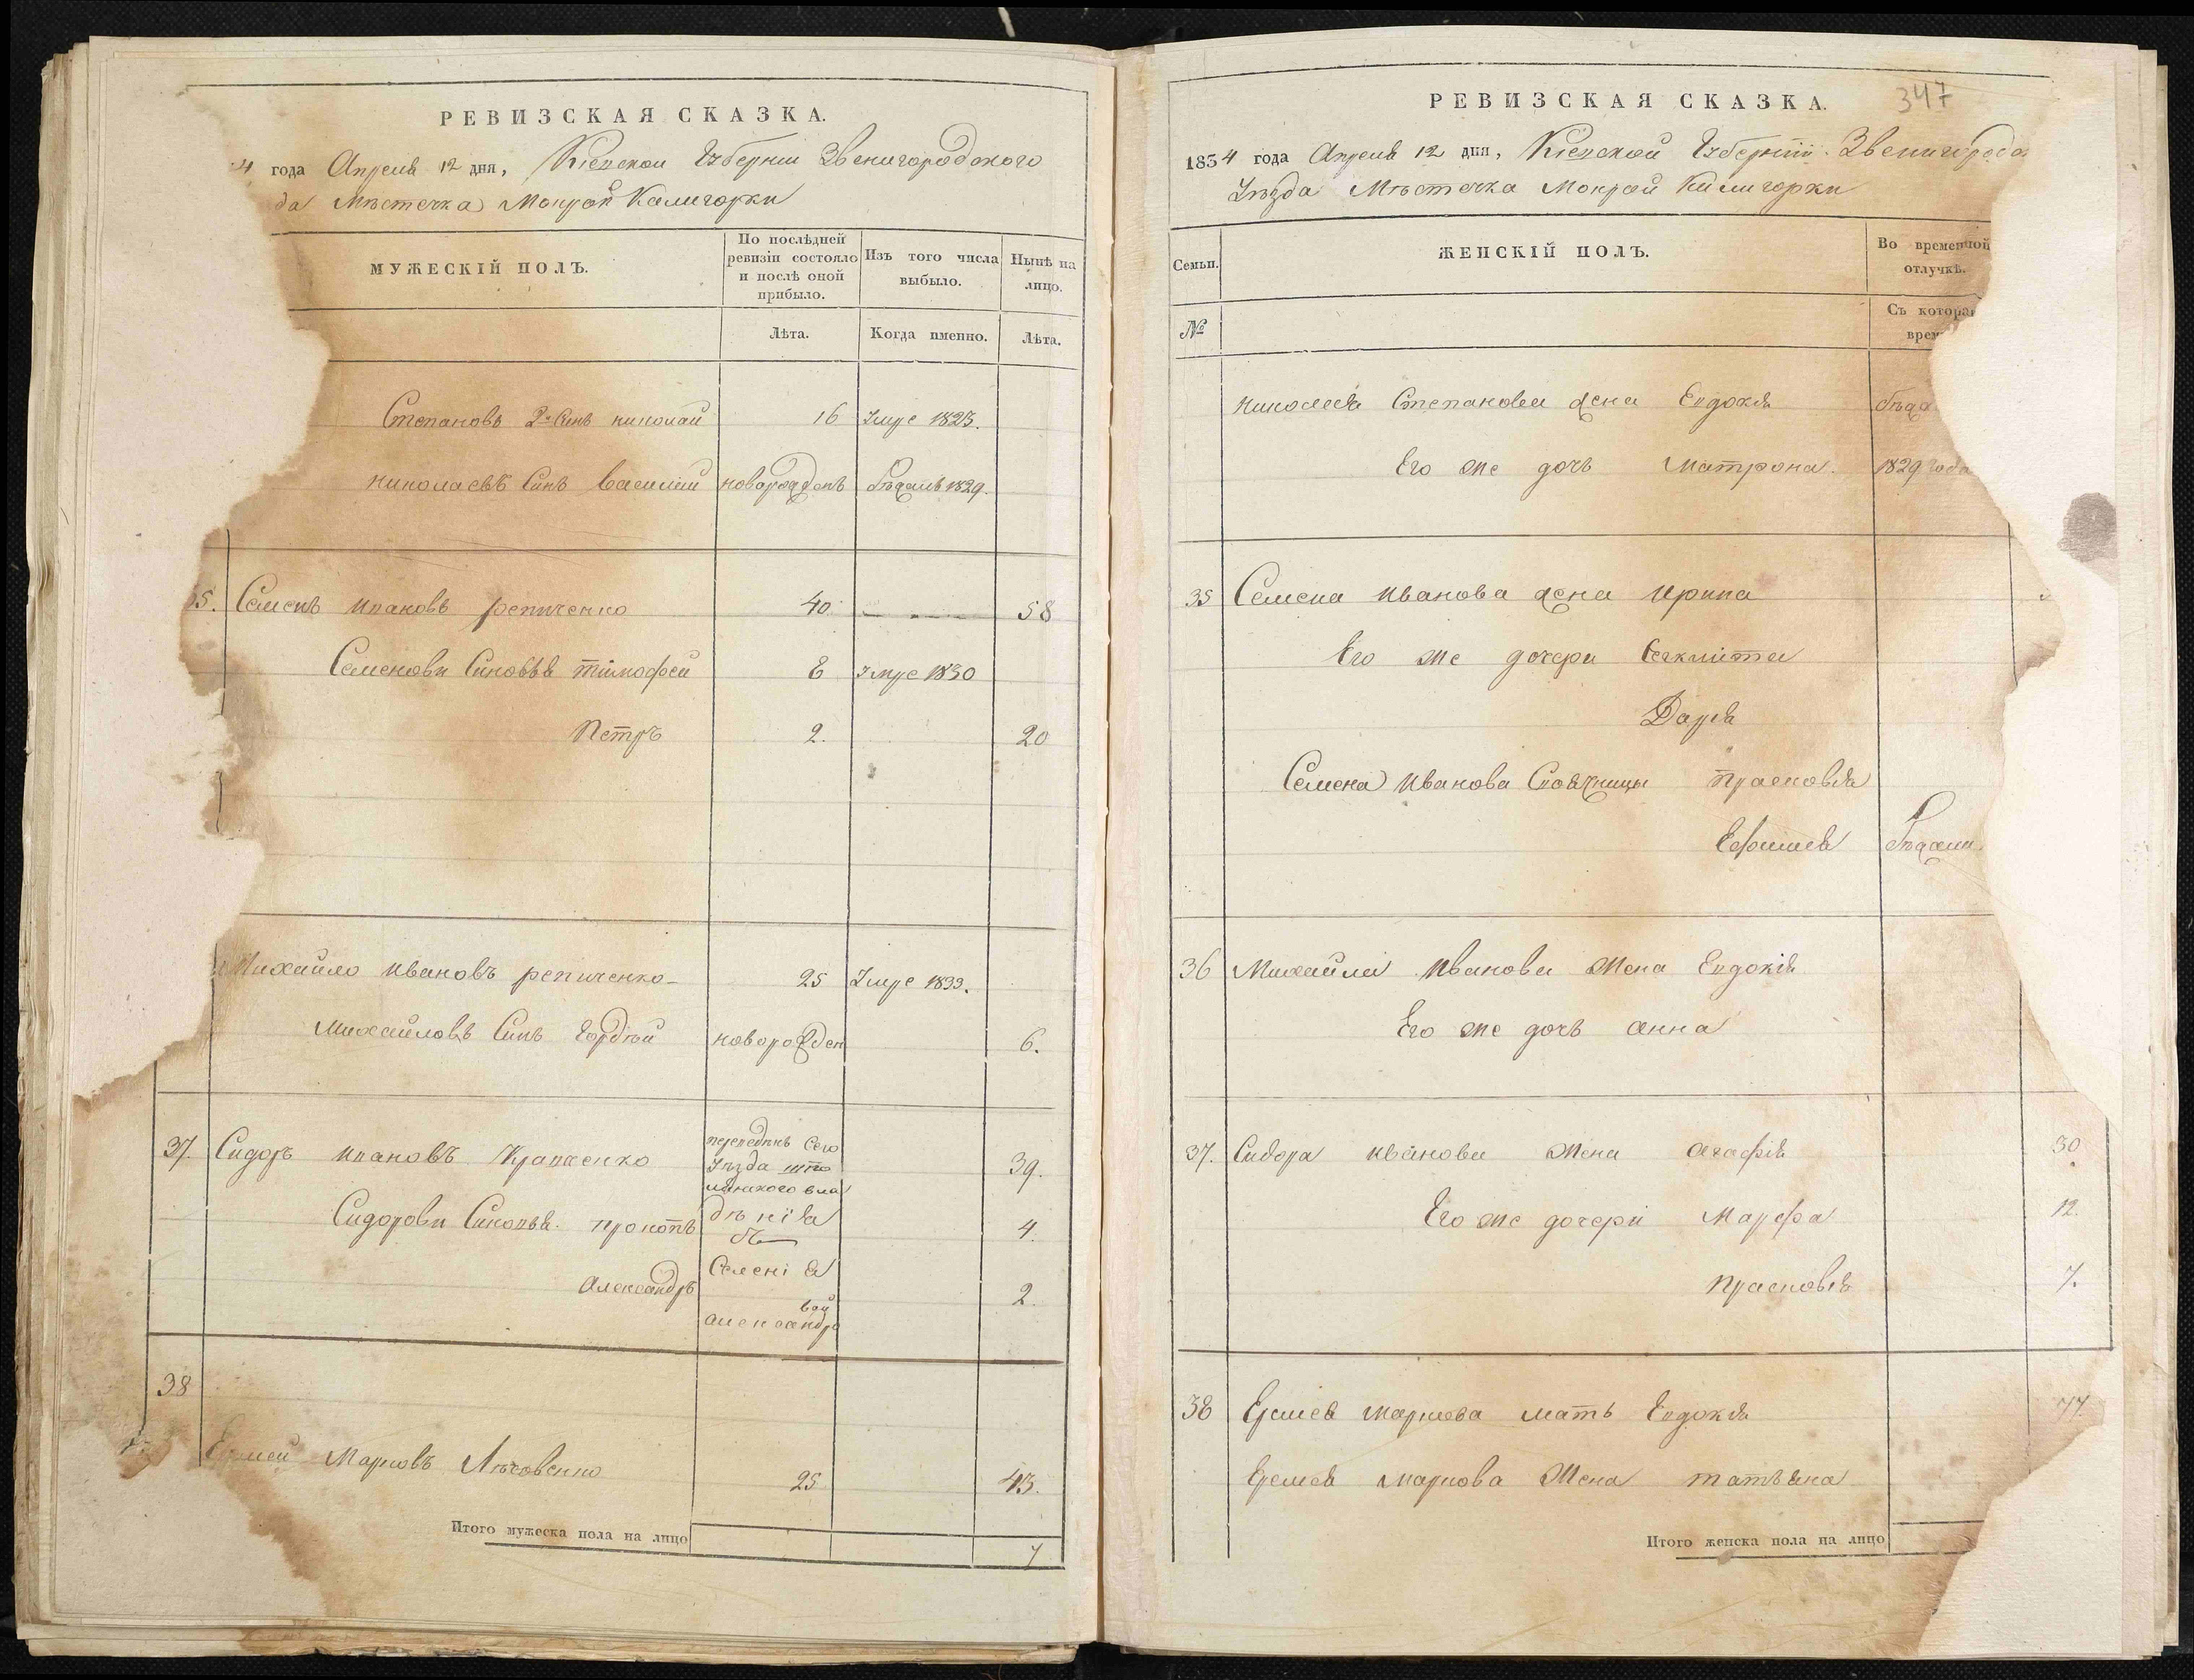 РЕВИЗСКАЯ СКАЗКА.
4 года Апреля 12 дня, Кіевской Губерніи Звенигородского
да Мѣстечка Мокрой Калигорки
МУЖЕСКІЙ ПОЛЪ.
По послѣдней ревизіи состояло и послѣ оной прибыло.
Изъ того числа выбыло.
Нынѣ на лицо.
Лѣта.
Когда именно.
Лѣта.
Степановъ 2й Синъ николай 16 Умре 1823.
николаевъ Синъ василий новорожденъ бѣжалъ 1829.
35. Семенъ ивановъ репиченко 40 58
Семенови Синовья тимофей 8 Умре 1830
Петръ 2. 20
Михайло ивановъ репиченко 25 Умре 1833.
Михайловъ Синъ Гордѣй новорожден 6.
37. Сидоръ ивановъ 39.
переведенъ Сего
Уѣзда
вла
дѣнія
Сидорови Синовья прокопъ 4.
Александръ 2.
38
Еремей Марковъ Лѣсовенко 25 43.
Итого мужеска пола на лицо 7
347
РЕВИЗСКАЯ СКАЗКА.
1834 года Апреля 12 дня, Кіевской Губерніи Звенигородс
Уѣзда Мѣстечка Мокрой Калигорки
Семьи.
ЖЕНСКІЙ ПОЛЪ.
Во временной отлучкѣ.
№
Съ котора
врем
николая Степанова жена Евдокія
Его же дочь Матрона. 1829 года
35 Семена иванова жена ирина
Его же дочери
Дарія
Семена иванова Своячницы Прасковія
Ефимія
36 Михайла иванова жена Евдокія
Его же дочь анна
37. Сидора иванова жена агафія 30
Его же дочери Марфа 12.
Прасковія 7.
38 Еремея маркова мать Евдокія 77.
Еремея маркова жена татьяна
Итого женска пола на лицо